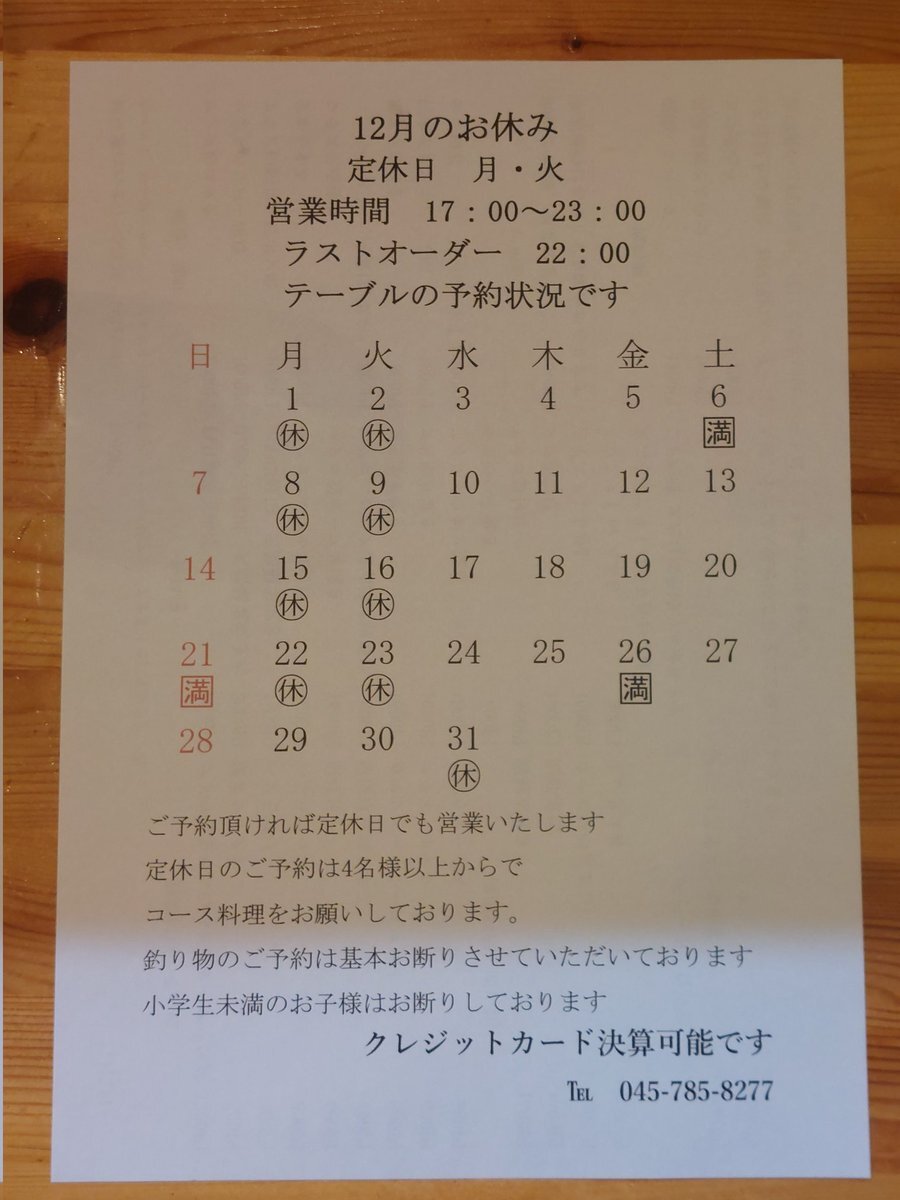 12月のお休み
定休日　月・火
営業時間　17：00～23：00
ラストオーダー　22：00
テーブルの予約状況です
日 月 火 水 木 金 土
1 2 3 4 5 6
㊡ ㊡ 満
7 8 9 10 11 12 13
㊡ ㊡
14 15 16 17 18 19 20
㊡ ㊡
21 22 23 24 25 26 27
満 ㊡ ㊡ 満
28 29 30 31
㊡
ご予約頂ければ定休日でも営業いたします
定休日のご予約は4名様以上からで
コース料理をお願いしております。
釣り物のご予約は基本お断りさせていただいております
小学生未満のお子様はお断りしております
クレジットカード決算可能です
℡　045-785-8277